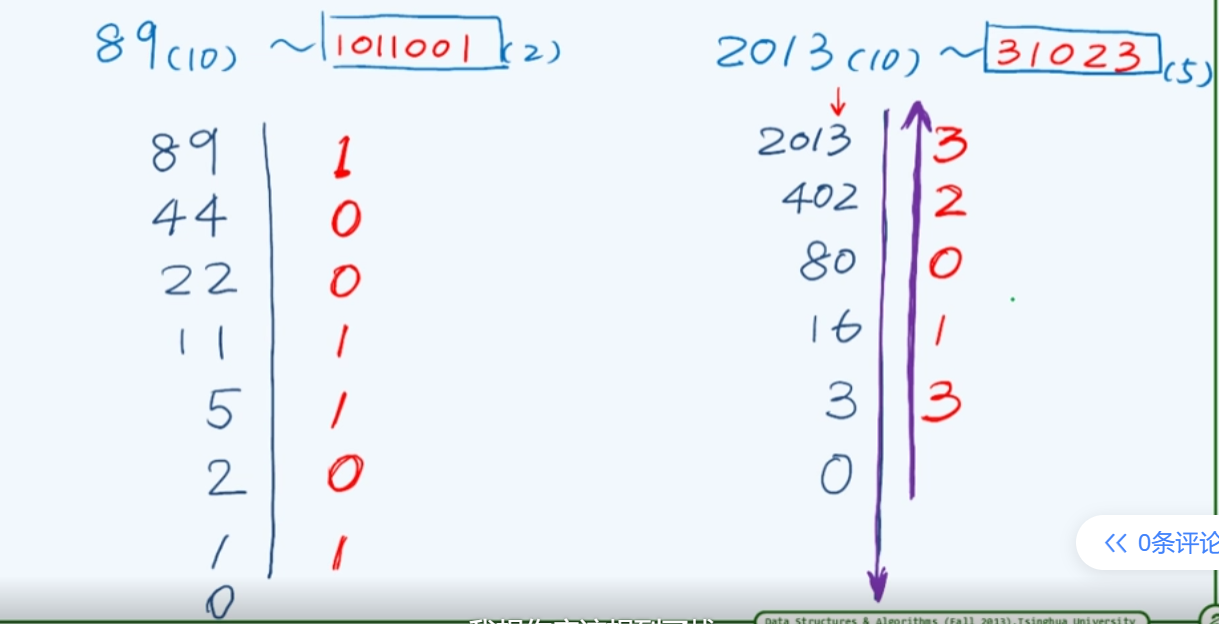 89(10) ~ 1011001 (2)
89 1
44 0
22 0
11 1
5 1
2 0
1 1
0
2013(10) ~ 31023 (5)
2013 3
402 2
80 0
16 1
3 3
0
0条评论
Data Structures & Algorithms (Fall 2013), Tsinghua University